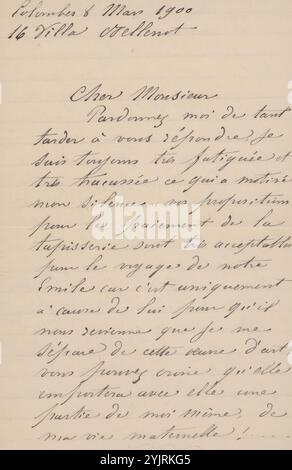 Colombes 8 Mars 1900
16 Villa
Cher Monsieur
Pardonnez moi de tant
tarder à vous répondre, je
suis toujours très fatiguée et
très tracassée ce qui a motivé
mon silence vos propositions
pour le paiement de la
tapisserie sont très acceptables
pour le voyage de notre
Emile car c'est uniquement
à cause de lui pour qu'il
nous revienne que je me
sépare de cette œuvre d'art
vous pouvez croire qu'elle
emportera avec elle une
partie de moi même, de
ma vie maternelle !
alamy
Image ID: 2YJRKG5
www.alamy.com